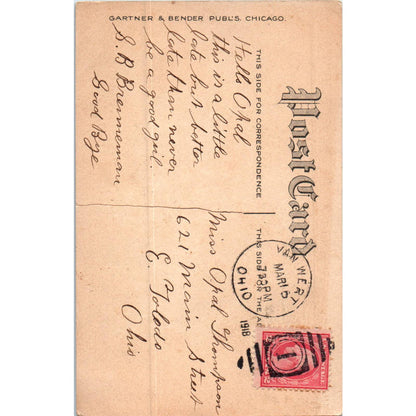 GARTNER & BENDER PUBL'S. CHICAGO.
Post Card
THIS SIDE FOR CORRESPONDENCE
THIS SIDE FOR THE
Hello Opal
this is a little
late but better
late than never
be a good girl.
S. B. Brenneman
Good Bye
VAN WERT
MAR 15
7 PM
OHIO
1918
1
Miss Opal Thompson
621 Main Street
E. Toledo
Ohio